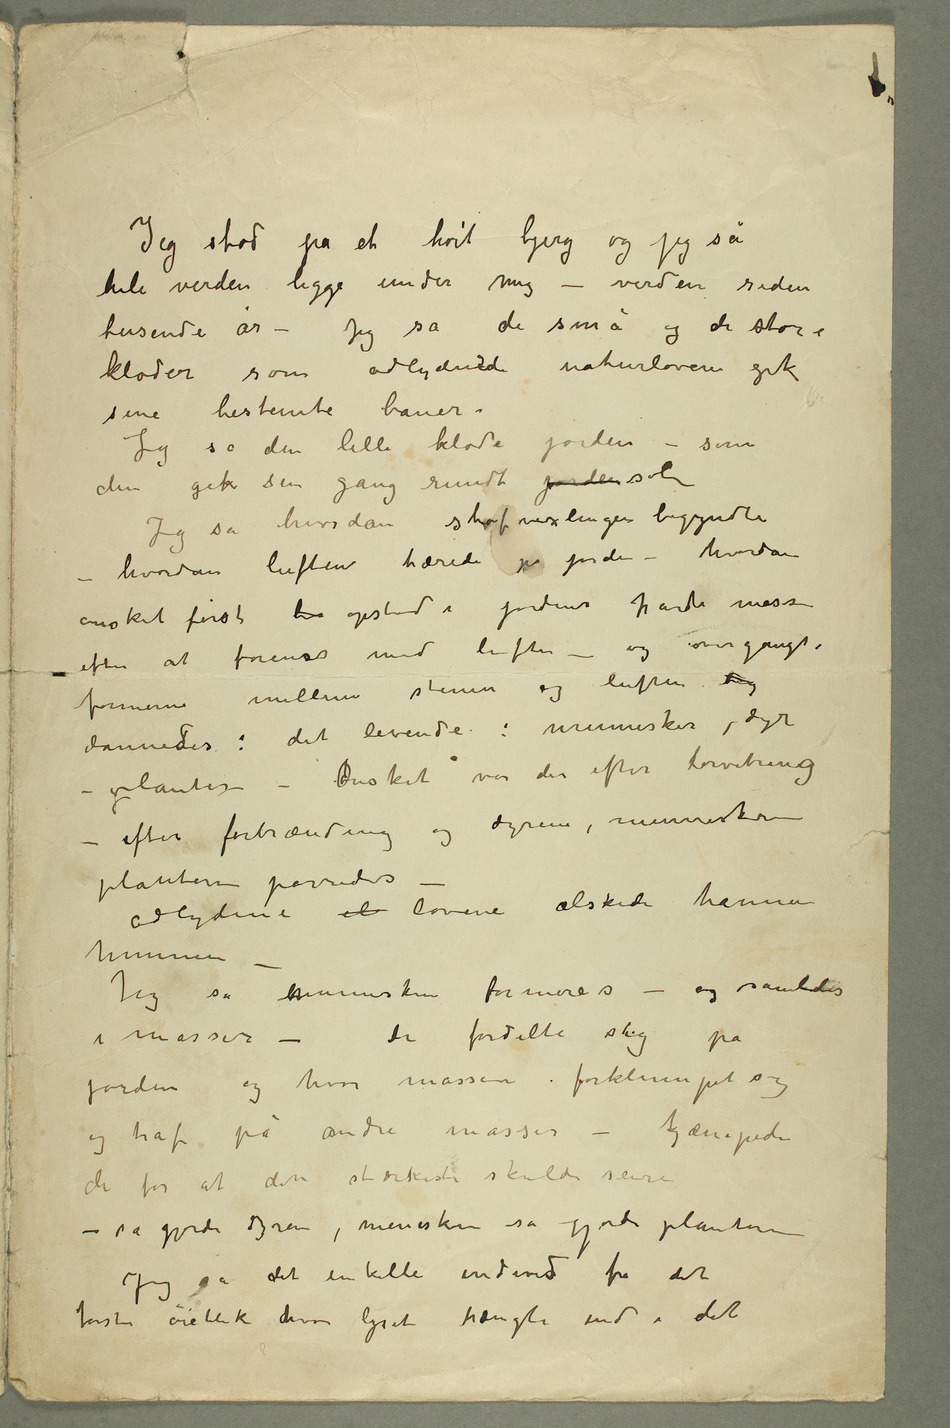 Jeg stod på et høit bjerg og jeg så
hele verden ligge under mig – verden siden
tusende år – Jeg så de små og de store
kloder som adlydende naturlovene gik
sine bestemte baner.
Jeg så den lille klode jorden – som
den gik sin gang rundt jorden solen
Jeg så hvordan stofvexlingen begyndte
– hvordan luften tærede på jorden – hvordan
ønsket først opstod i jordens hårde masse
efter at forenes med luften – og overgangs-
formerne mellem stenen og luften
dannedes: det levende: mennesker, dyr
– planter – Ønsket var der efter forvitring
– efter forbrænding og dyrene, menneskene
planterne parredes –
adlydene lovene elskede hannen
hunnen –
Jeg så menneskene formeres – og samledes
i masser – de fordelte sig på
jorden og hvor massen forklumpet sig
og traf på andre masser – kjæmpede
de for at den stærkeste skulde seire
– så gjorde dyrene, meneskene så gjorde planterne
Jeg så det enkelte individ fra det
første öieblik hvor lyset trængte ind i det